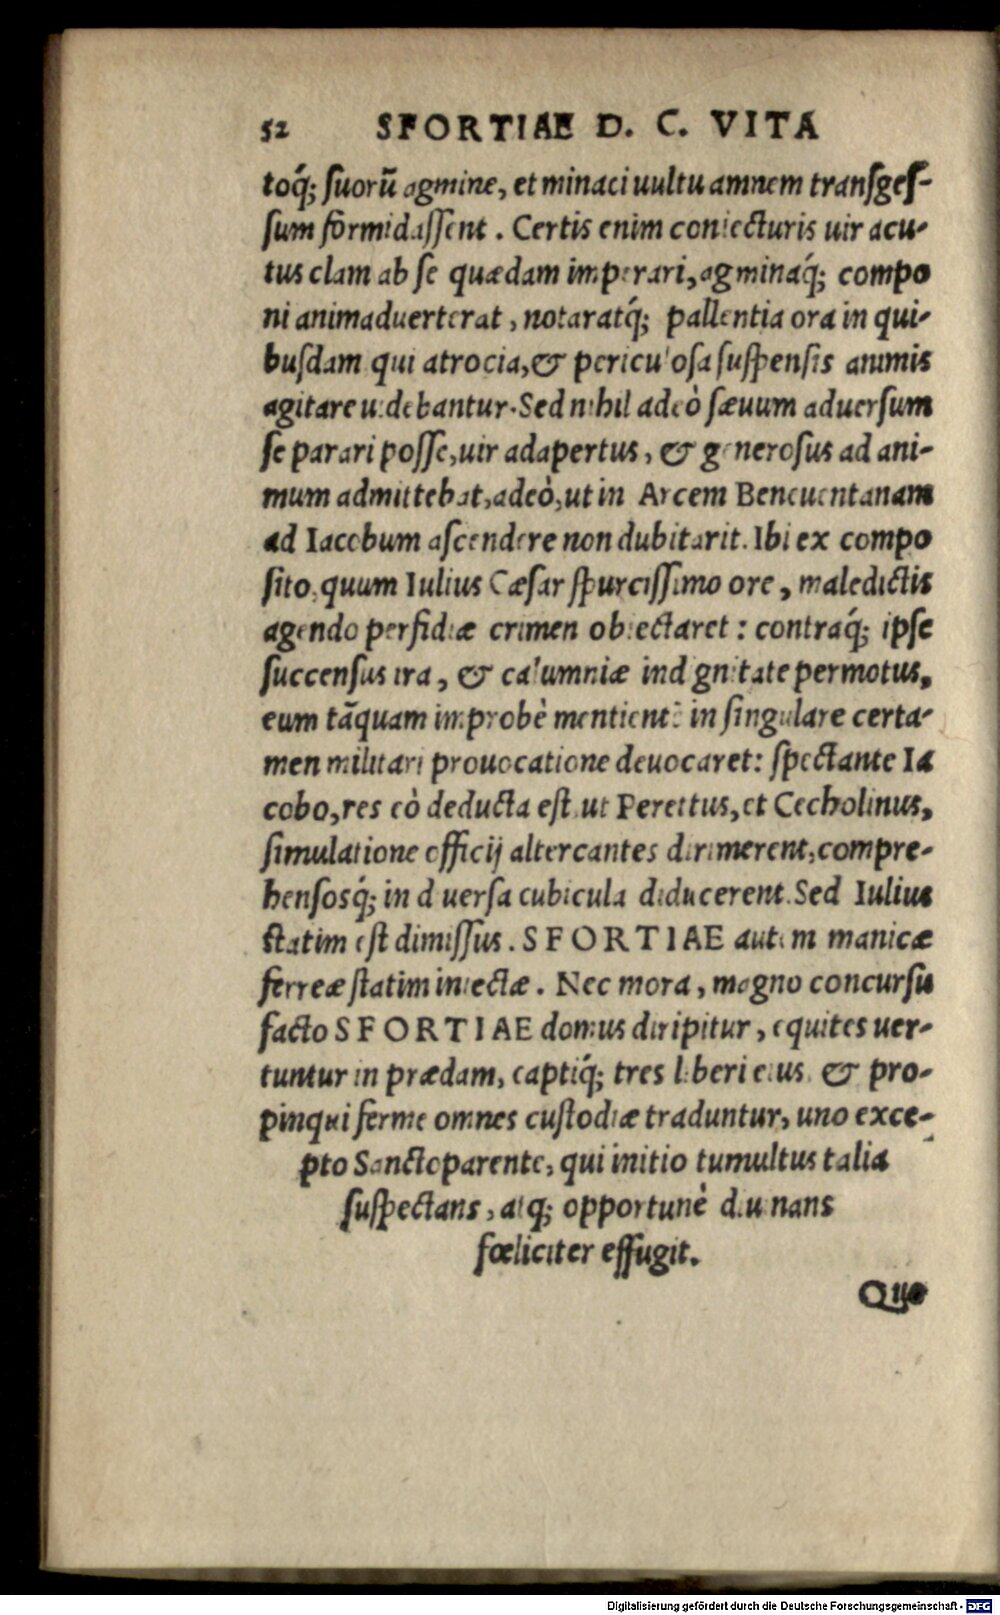 52 SFORTIAE D. C. VITA
toq́; suorū agmine, et minaci uultu amnem transges-
sum formidassent. Certis enim coniecturis uir acu-
tus clam ab se quædam imperari, agminaq́; compo
ni animaduerterat, notaratq́; pallentia ora in qui-
busdam qui atrocia, & periculosa suspensis animis
agitare uidebantur. Sed nihil adeò sæuum aduersum
se parari posse, uir adapertus, & generosus ad ani-
mum admittebat, adeò, ut in Arcem Beneuentanam
ad Iacobum ascendere non dubitarit. Ibi ex compo
sito, quum Iulius Cæsar spurcissimo ore, maledictis
agendo perfidiæ crimen obiectaret: contraq́; ipse
succensus ira, & calumniæ indignitate permotus,
eum tāquam improbè mentientē in singulare certa-
men militari prouocatione deuocaret: spectante Ia
cobo, res eò deducta est, ut Perettus, et Cecholinus,
simulatione officij altercantes dirimerent, compre-
hensosq́; in diuersa cubicula diducerent. Sed Iulius
statim est dimissus. SFORTIAE autem manicæ
ferreæ statim iniectæ. Nec mora, magno concursu
facto SFORTIAE domus diripitur, equites uer-
tuntur in prædam, captiq́; tres liberi eius, & pro-
pinqui ferme omnes custodiæ traduntur, uno exce-
pto Sanctoparente, qui initio tumultus talia
suspectans, atq; opportunè diuinans
fœliciter effugit.
Quo
Digitalisierung gefördert durch die Deutsche Forschungsgemeinschaft - DFG